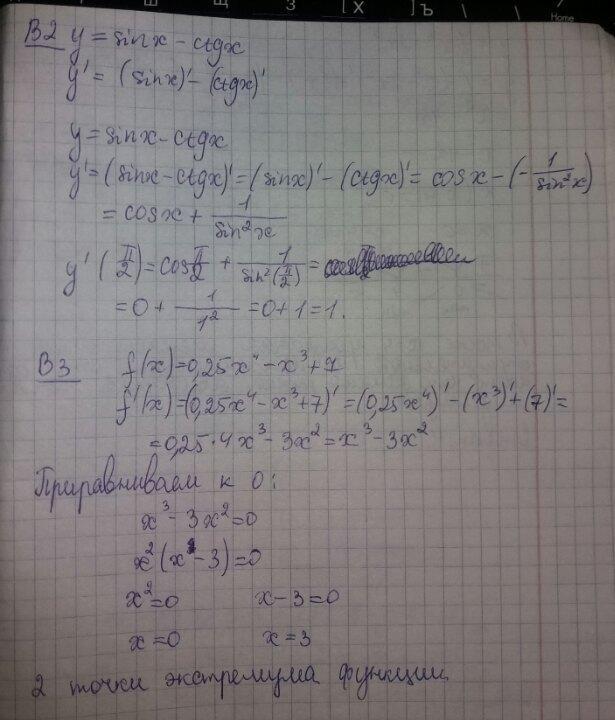 Home
B2 y = sinx - ctgx
y' = (sinx)' - (ctgx)'
y = sinx - ctgx
y' = (sinx - ctgx)' = (sinx)' - (ctgx)' = cosx - (- 1/sin²x)
= cosx + 1/sin²x
y'(π/2) = cos π/2 + 1/sin²(π/2) =
= 0 + 1/1² = 0 + 1 = 1.
B3 f(x) = 0,25x⁴ - x³ + 7
f'(x) = (0,25x⁴ - x³ + 7)' = (0,25x⁴)' - (x³)' + (7)' =
= 0,25·4x³ - 3x² = x³ - 3x²
Приравниваем к 0:
x³ - 3x² = 0
x²(x - 3) = 0
x² = 0 x - 3 = 0
x = 0 x = 3
2 точки экстремума функции